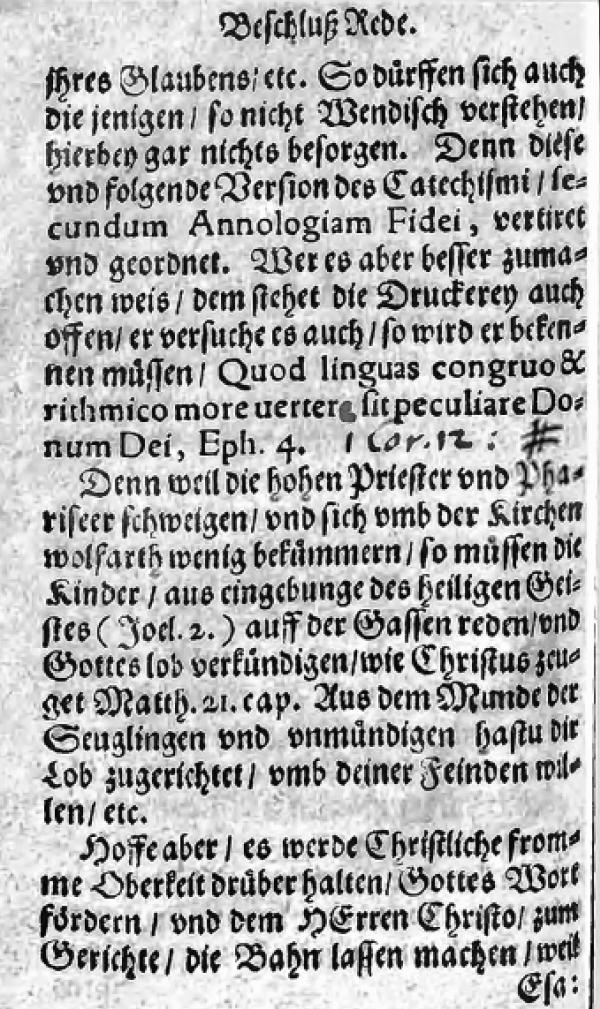 Beſchluß Rede.
jhres Glaubens/ etc. So dürffen ſich auch
die jenigen / ſo nicht Wendiſch verſtehen/
hierbey gar nichts beſorgen. Denn dieſe
vnd folgende Verſion des Catechiſmi / ſe⸗
cundum Annologiam Fidei, vertiret
vnd geordnet. Wer es aber beſſer zuma⸗
chen weis / dem ſtehet die Druckerey auch
offen/ er verſuche es auch / ſo wird er beken⸗
nen müſſen / Quod linguas congruo &
rithmico more uertere ſit peculiare Do⸗
num Dei, Eph. 4. 1 Cor. 12 : #
Denn weil die hohen Prieſter vnd Pha⸗
riſeer ſchweigen/ vnd ſich vmb der Kirchen
wolfarth wenig bekümmern / ſo müſſen die
Kinder / aus eingebunge des heiligen Gei⸗
ſtes ( Joel. 2. ) auff der Gaſſen reden/ vnd
Gottes lob verkündigen/ wie Chriſtus zeu⸗
get Matth. 21. cap. Aus dem Munde der
Seuglingen vnd vnmündigen haſtu dir
Lob zugerichtet / vmb deiner Feinden wil⸗
len/ etc.
Hoffe aber / es werde Chriſtliche from⸗
me Oberkeit drüber halten/ Gottes Wort
fördern / vnd dem HErren Chriſto/ zum
Gerichte / die Bahn laſſen machen / weil
Eſa: